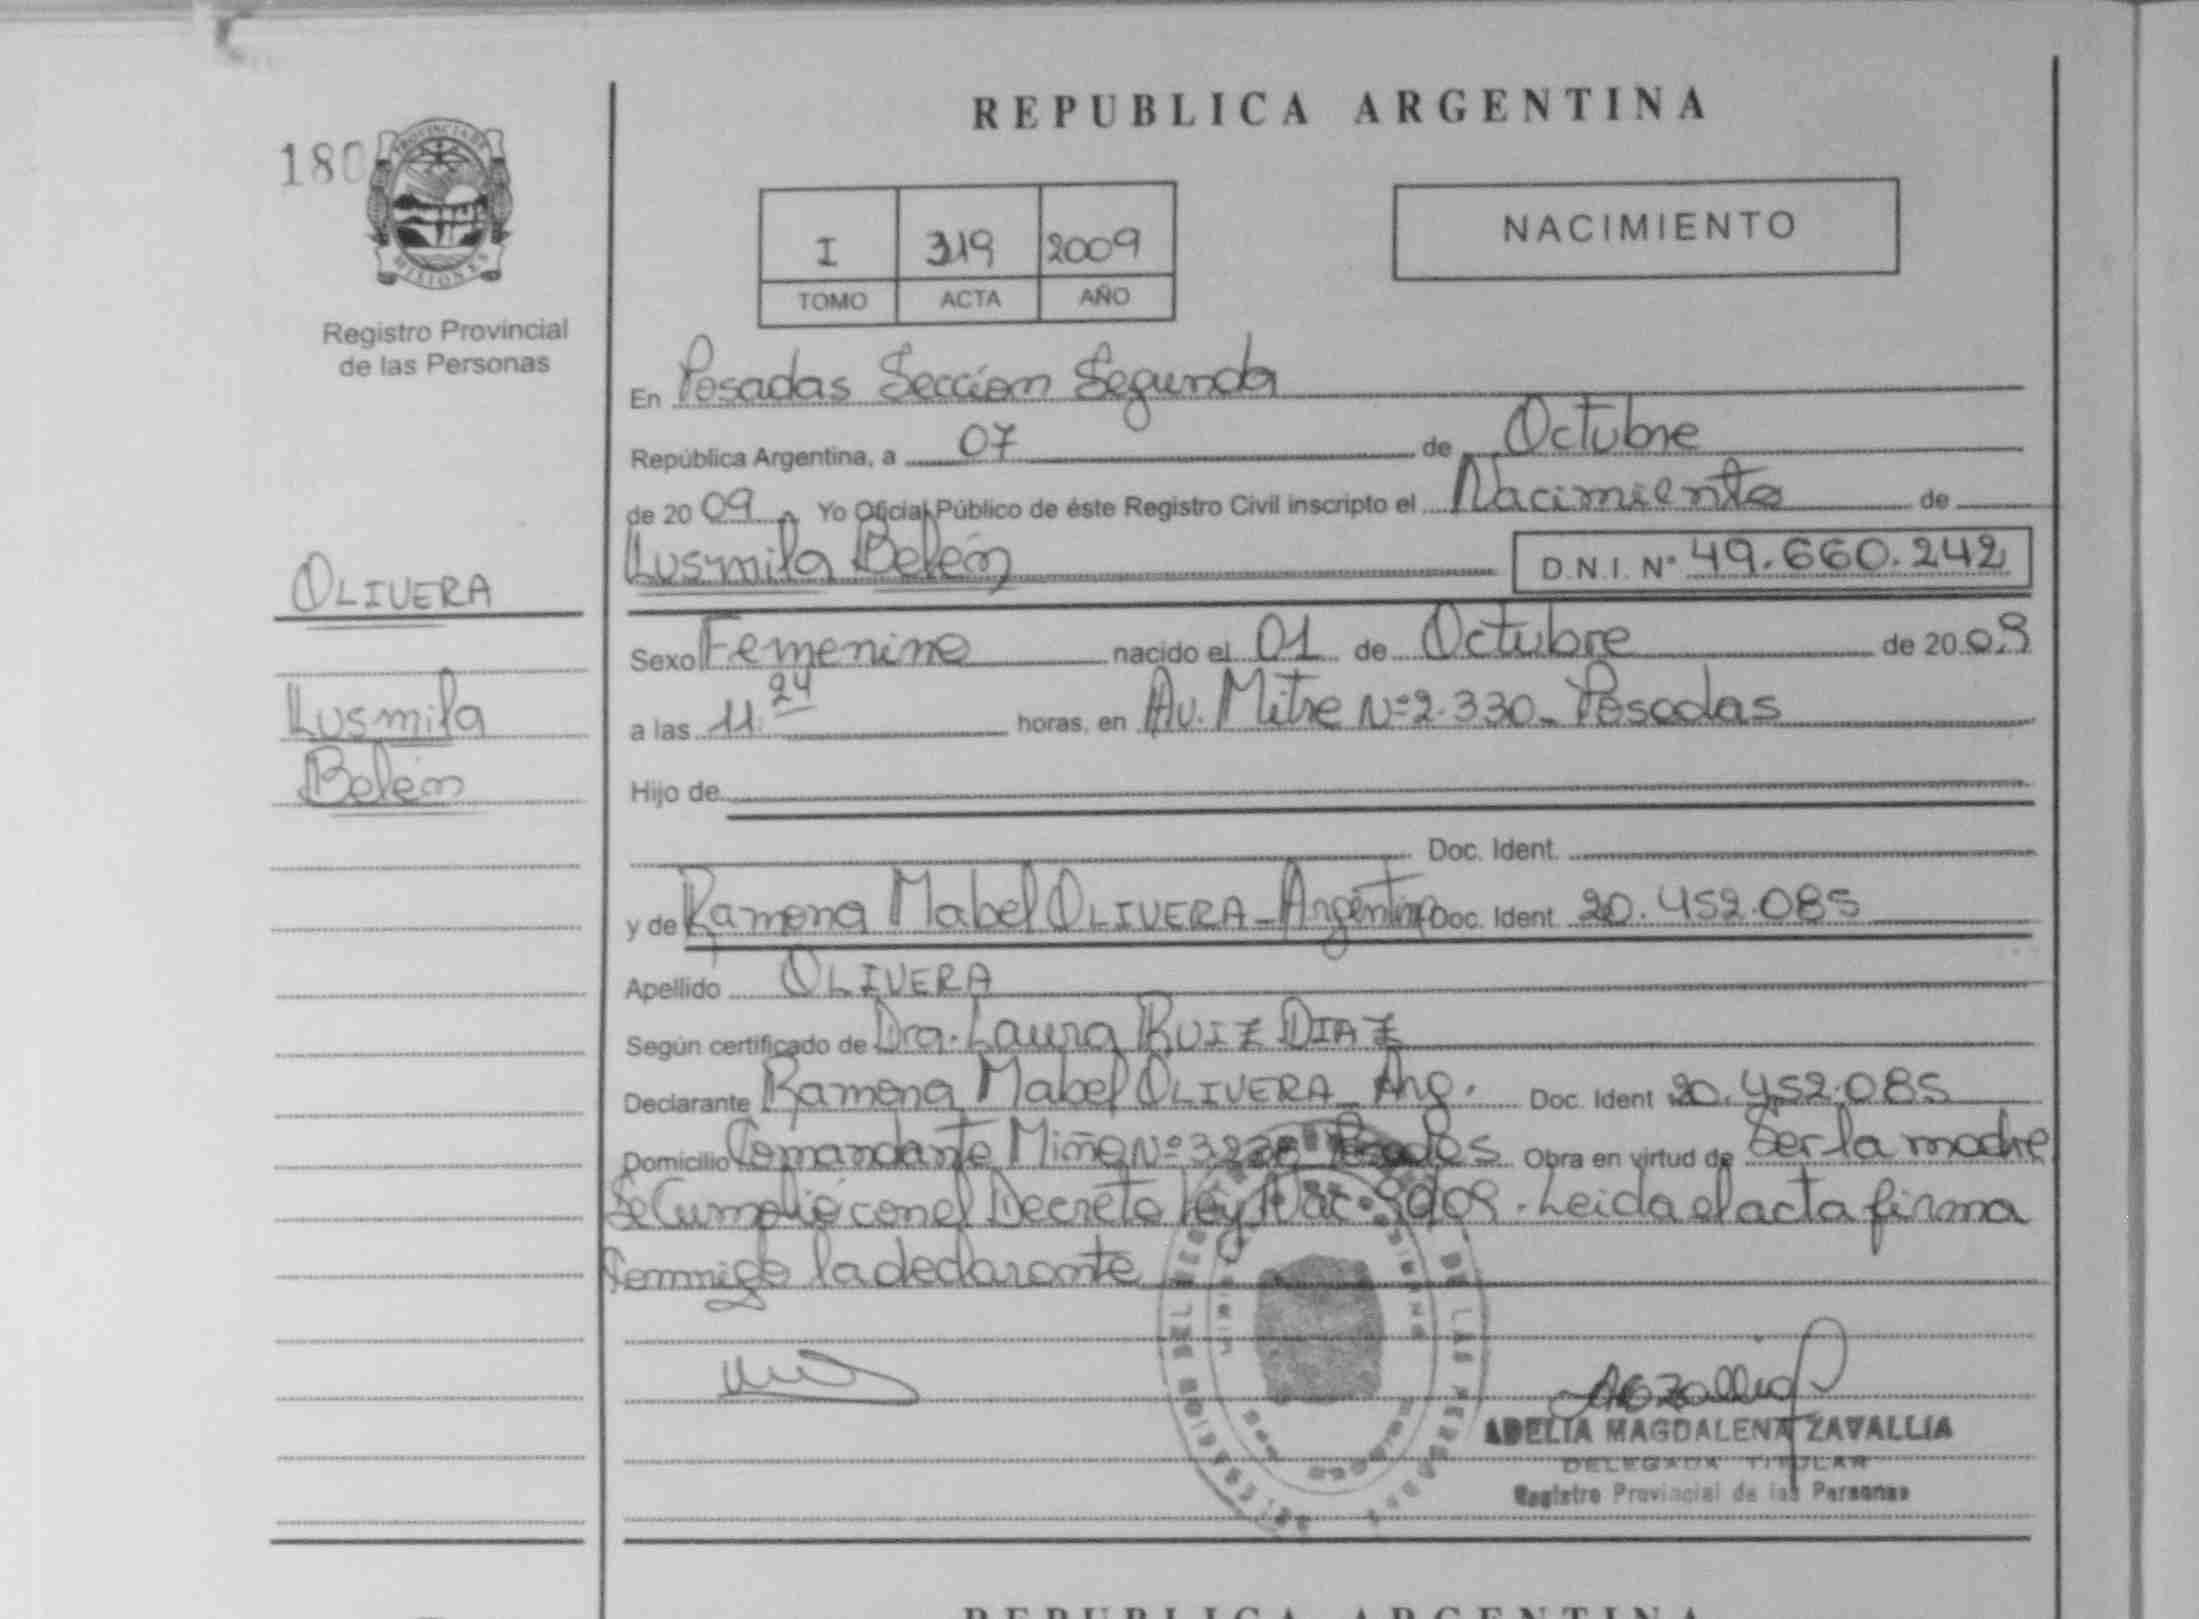 REPUBLICA ARGENTINA
180
PROVINCIA DE
MISIONES
Registro Provincial
de las Personas
I 319 2009
TOMO ACTA AÑO
NACIMIENTO
En Posadas Seccion Segunda
República Argentina, a 07 de Octubre
de 20 09 Yo Oficial Público de éste Registro Civil inscripto el Nacimiento de
Lusmila Belén D.N.I. Nº 49.660.242
OLIVERA
Lusmila
Belén
Sexo Femenino nacido el 01 de Octubre de 20 09
a las 11.24 horas, en Av. Mitre Nº 2.330 - Posadas
Hijo de
Doc. Ident.
y de Ramona Mabel OLIVERA - Argentina Doc. Ident. 20.452.085
Apellido OLIVERA
Según certificado de Dra. Laura RUIZ DIAZ
Declarante Ramona Mabel OLIVERA - Arg. Doc. Ident 20.452.085
Domicilio Comandante Miño Nº Posadas Obra en virtud de Ser la madre
Se Cumplió con el Decreto Ley Nac. Leida el acta firma
conmigo la declarante
ADELIA MAGDALENA ZAVALLIA
DELEGADA TITULAR
Registro Provincial de las Personas
REPUBLICA ARGENTINA